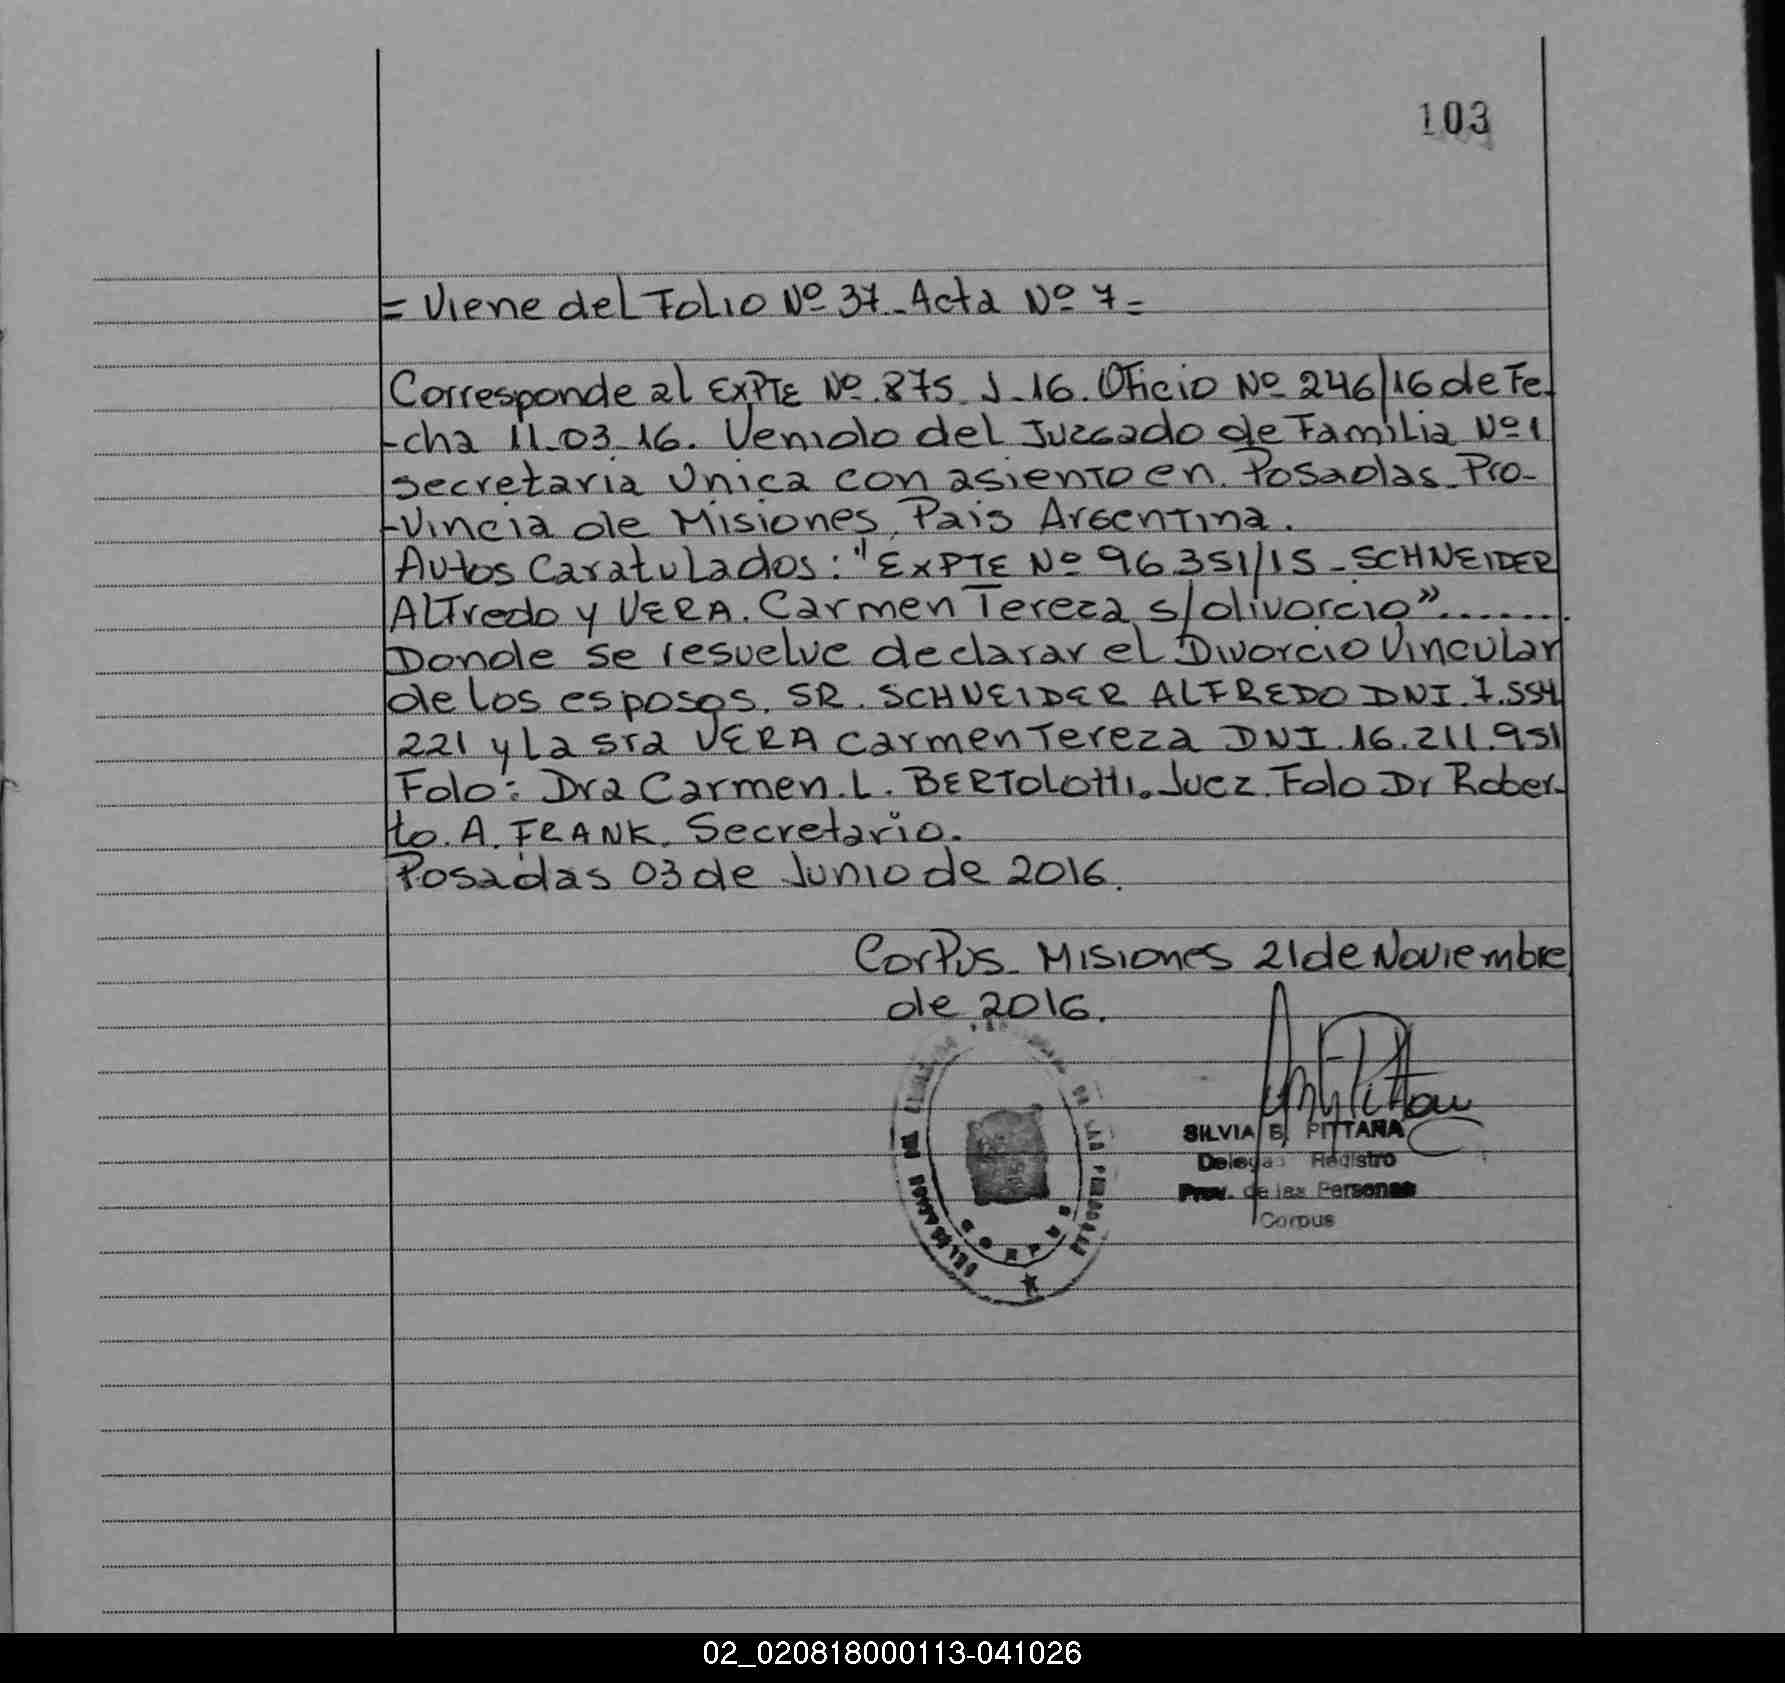 103
= Viene del Folio Nº 37. Acta Nº 7 =
Corresponde al EXPTE Nº 875. J-16. Oficio Nº 246/16 de Fe-
-cha 11-03-16. Venido del Juzgado de Familia Nº 1
Secretaria Unica con asiento en Posadas Pro-
-vincia de Misiones, Pais Argentina.
Autos Caratulados: "EXPTE Nº 96351/15 - SCHNEIDER
Alfredo y VERA. Carmen Tereza s/divorcio".......
Donde se resuelve declarar el Divorcio Vincular
de los esposos, SR. SCHNEIDER ALFREDO DNI. 7.554
221 y La sra VERA carmen Tereza DNI. 16.211.951
Fdo: Dra Carmen. L. BERTOLOTTI. Juez. Fdo Dr Rober-
to. A. FRANK. Secretario.
Posadas 03 de Junio de 2016.
Corpus Misiones 21 de Noviembre
de 2016.
SILVIA B. PITTANA
Delega Registro
Prov. de las Personas
Corpus
CORPUS
02_020818000113-041026